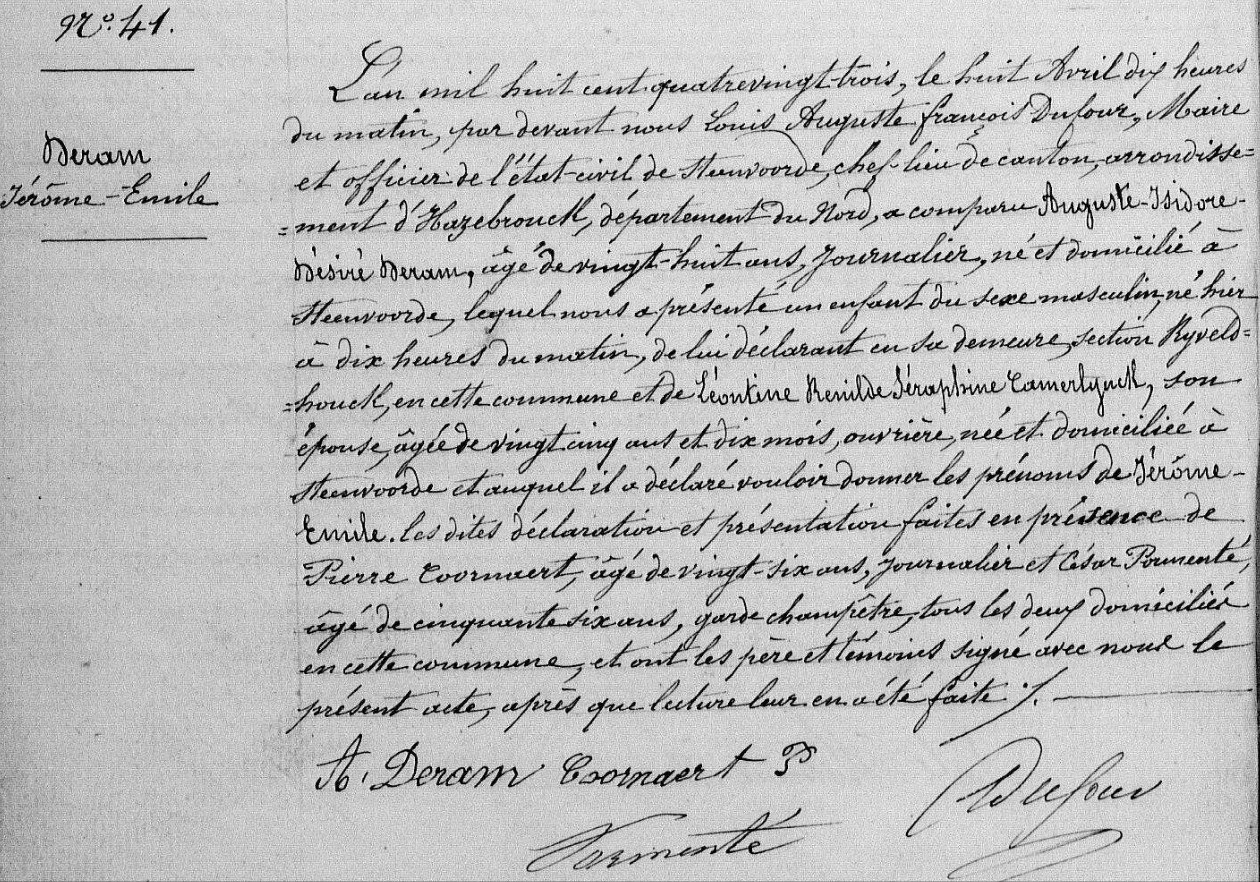 N.º 41.
Deram
Jérôme-Emile
L'an mil huit cent quatrevingt-trois, le huit Avril dix heures
du matin, par devant nous Louis Auguste françois Dufour, Maire
et officier de l'état-civil de Steenvoorde, chef-lieu de canton, arrondisse=
=ment d'Hazebrouck, département du Nord, a comparu Auguste-Isidore-
Désiré Deram, âgé de vingt-huit ans, Journalier, né et domicilié à
Steenvoorde, lequel nous a présenté un enfant du sexe masculin, né hier
à dix heures du matin, de lui déclarant en sa demeure, section Ryveld=
=houck, en cette commune et de Léontine Renilde Séraphine Camerlynck, son
épouse, âgée de vingt cinq ans et dix mois, ouvrière, née et domiciliée à
Steenvoorde et auquel il a déclaré vouloir donner les prénoms de Jérôme-
Emile. les dites déclaration et présentation faites en présence de
Pierre Coornaert, âgé de vingt-six ans, Journalier et César Parmenté,
âgé de cinquante six ans, garde champêtre, tous les deux domiciliés
en cette commune, et ont les père et témoins signé avec nous le
présent acte, après que lecture leur en a été faite ./.
A. Deram Coornaert P
Dufour
Parmenté